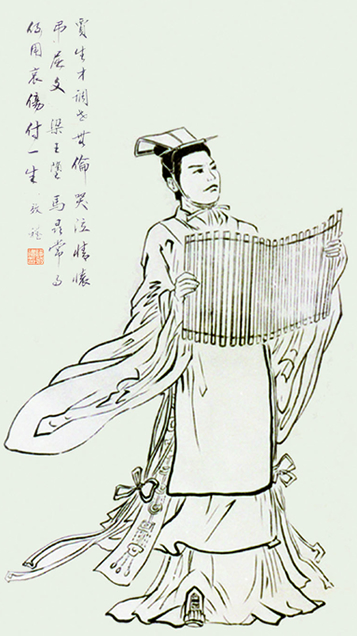 贾生才调世無倫 哭泣情懷
吊屈文 梁王墮馬尋常事
何用哀傷付一生